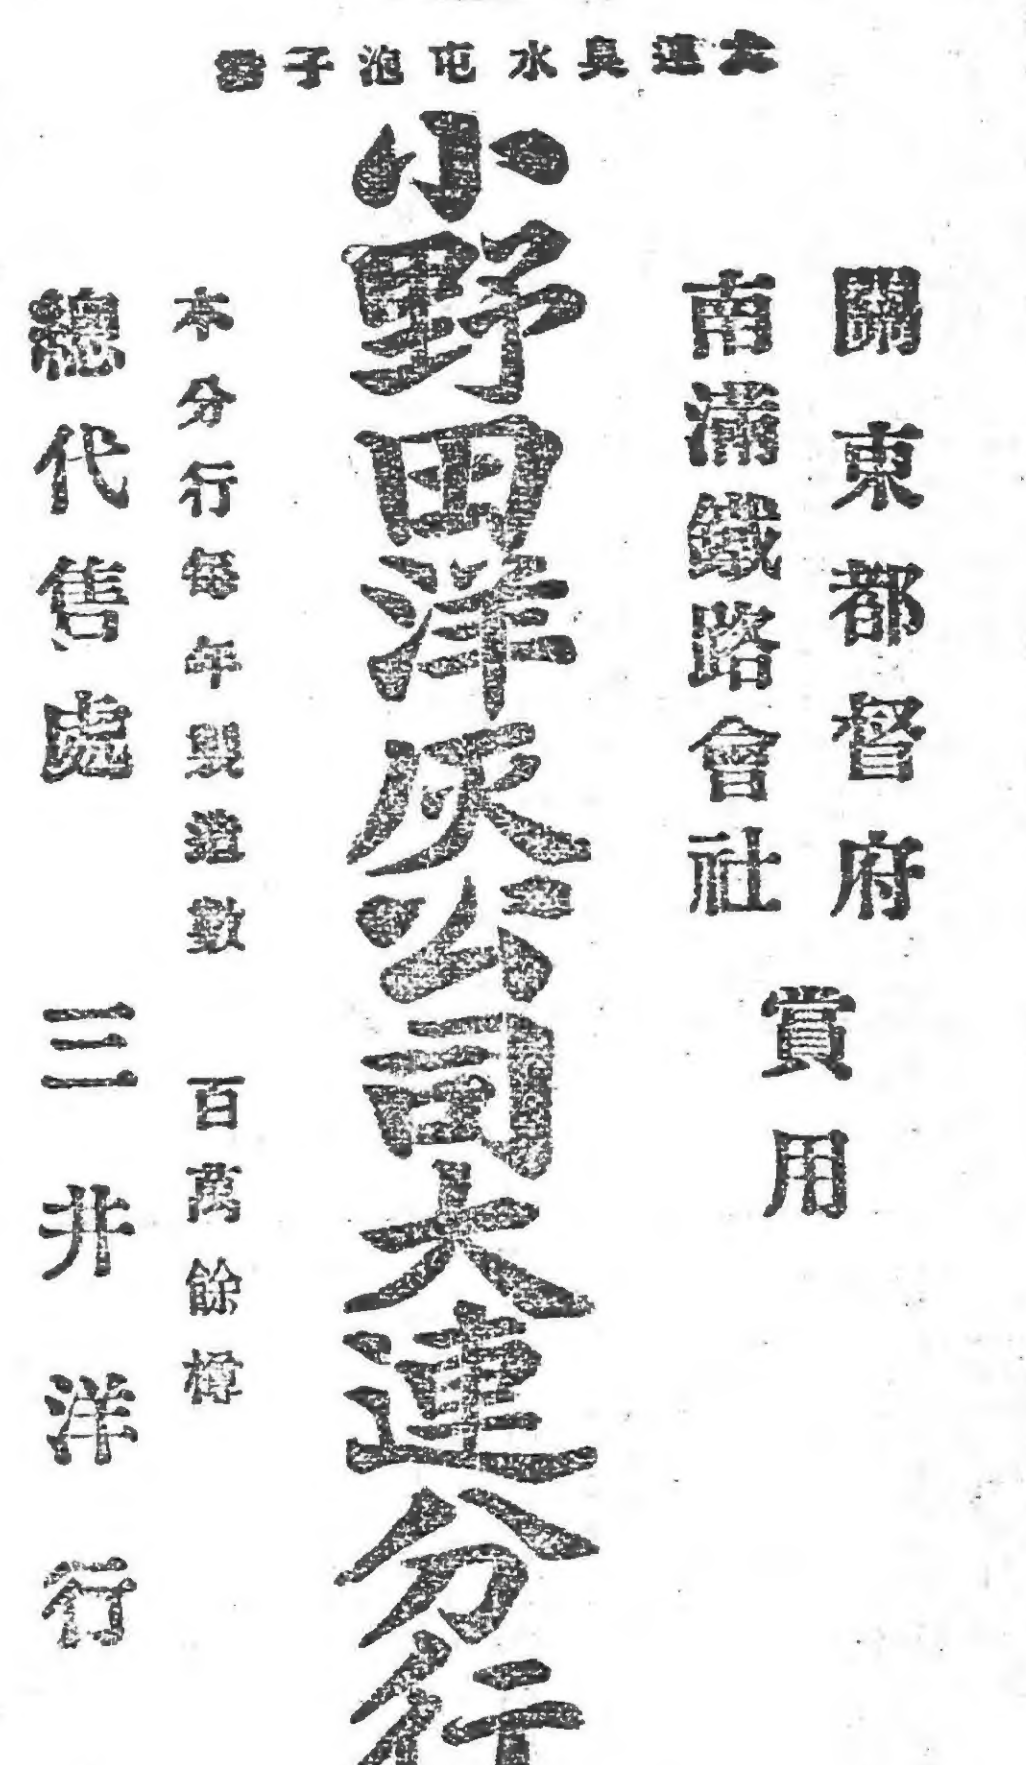 大連臭水屯泡子
關東都督府
南滿鐵路會社
賞用
小野田洋灰公司大連分行
本分行每年製造數 百萬餘樽
總代售處 三井洋行